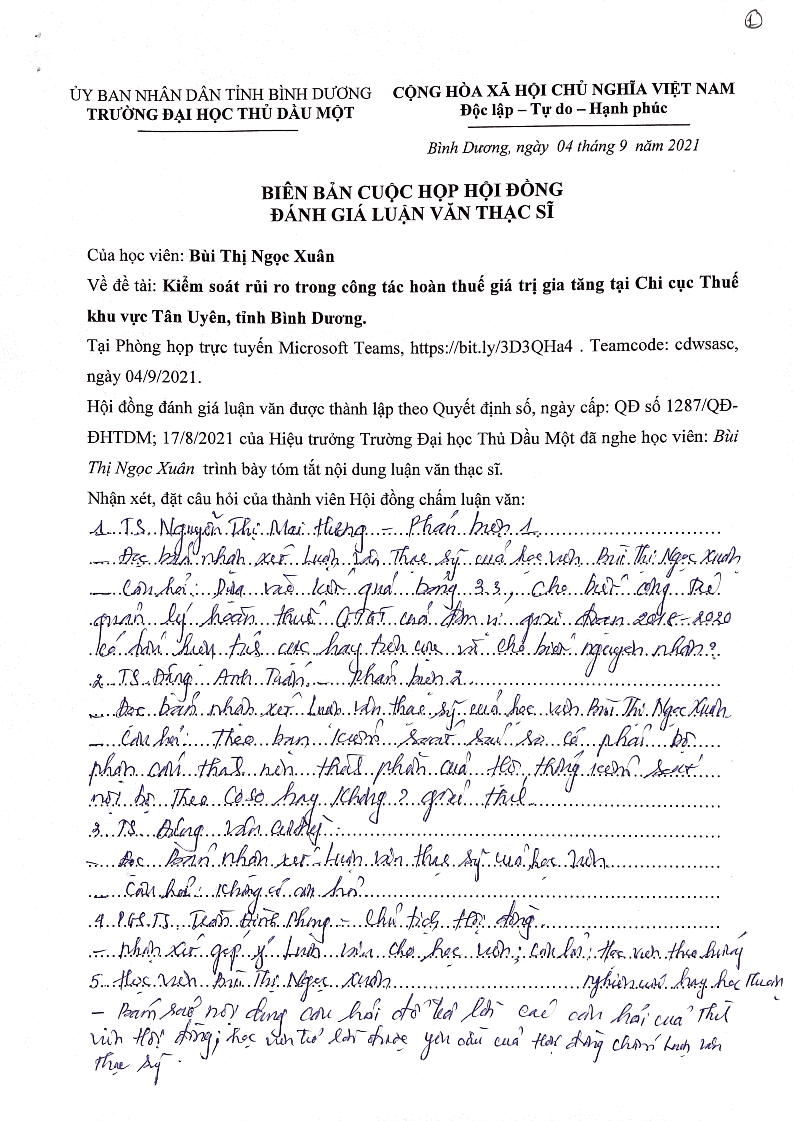 1
ỦY BAN NHÂN DÂN TỈNH BÌNH DƯƠNG
TRƯỜNG ĐẠI HỌC THỦ DẦU MỘT
CỘNG HÒA XÃ HỘI CHỦ NGHĨA VIỆT NAM
Độc lập – Tự do – Hạnh phúc
Bình Dương, ngày 04 tháng 9 năm 2021
BIÊN BẢN CUỘC HỌP HỘI ĐỒNG
ĐÁNH GIÁ LUẬN VĂN THẠC SĨ
Của học viên: Bùi Thị Ngọc Xuân
Về đề tài: Kiểm soát rủi ro trong công tác hoàn thuế giá trị gia tăng tại Chi cục Thuế
khu vực Tân Uyên, tỉnh Bình Dương.
Tại Phòng họp trực tuyến Microsoft Teams, https://bit.ly/3D3QHa4 . Teamcode: cdwsasc,
ngày 04/9/2021.
Hội đồng đánh giá luận văn được thành lập theo Quyết định số, ngày cấp: QĐ số 1287/QĐ-
ĐHTDM; 17/8/2021 của Hiệu trưởng Trường Đại học Thủ Dầu Một đã nghe học viên: Bùi
Thị Ngọc Xuân trình bày tóm tắt nội dung luận văn thạc sĩ.
Nhận xét, đặt câu hỏi của thành viên Hội đồng chấm luận văn:
1. TS. Nguyễn Thị Mai Hương – Phản biện 1
– Đọc bản nhận xét Luận văn Thạc sỹ của học viên Bùi Thị Ngọc Xuân
– Câu hỏi: Dựa vào kết quả bảng 3.3, cho biết công tác
quản lý hoàn thuế GTGT của đơn vị giai đoạn 2018-2020
có dấu hiệu tiêu cực hay tích cực và cho biết nguyên nhân?
2. TS. Đặng Anh Tuấn – Phản biện 2
– Đọc bản nhận xét Luận văn thạc sỹ của học viên Bùi Thị Ngọc Xuân
– Câu hỏi: Theo bạn kiểm soát có phải bộ
phận cấu thành nên thành phần của Hệ thống kiểm soát
nội bộ Theo COSO hay không? giải thích
3. TS. văn Cường:
– Đọc Bản nhận xét Luận văn thạc sỹ của học viên
– Câu hỏi: Không có câu hỏi
4. PGS.TS. Trần Đình Phụng – Chủ tịch Hội đồng
– Nhận xét góp ý Luận văn cho học viên; câu hỏi: Học viên theo hướng
nghiên cứu hay học thuật
5. Học viên Bùi Thị Ngọc Xuân
– Bám sát nội dung câu hỏi để trả lời các câu hỏi của Thành
viên Hội đồng; học viên trả lời được yêu cầu của Hội đồng chấm Luận văn
Thạc sỹ.